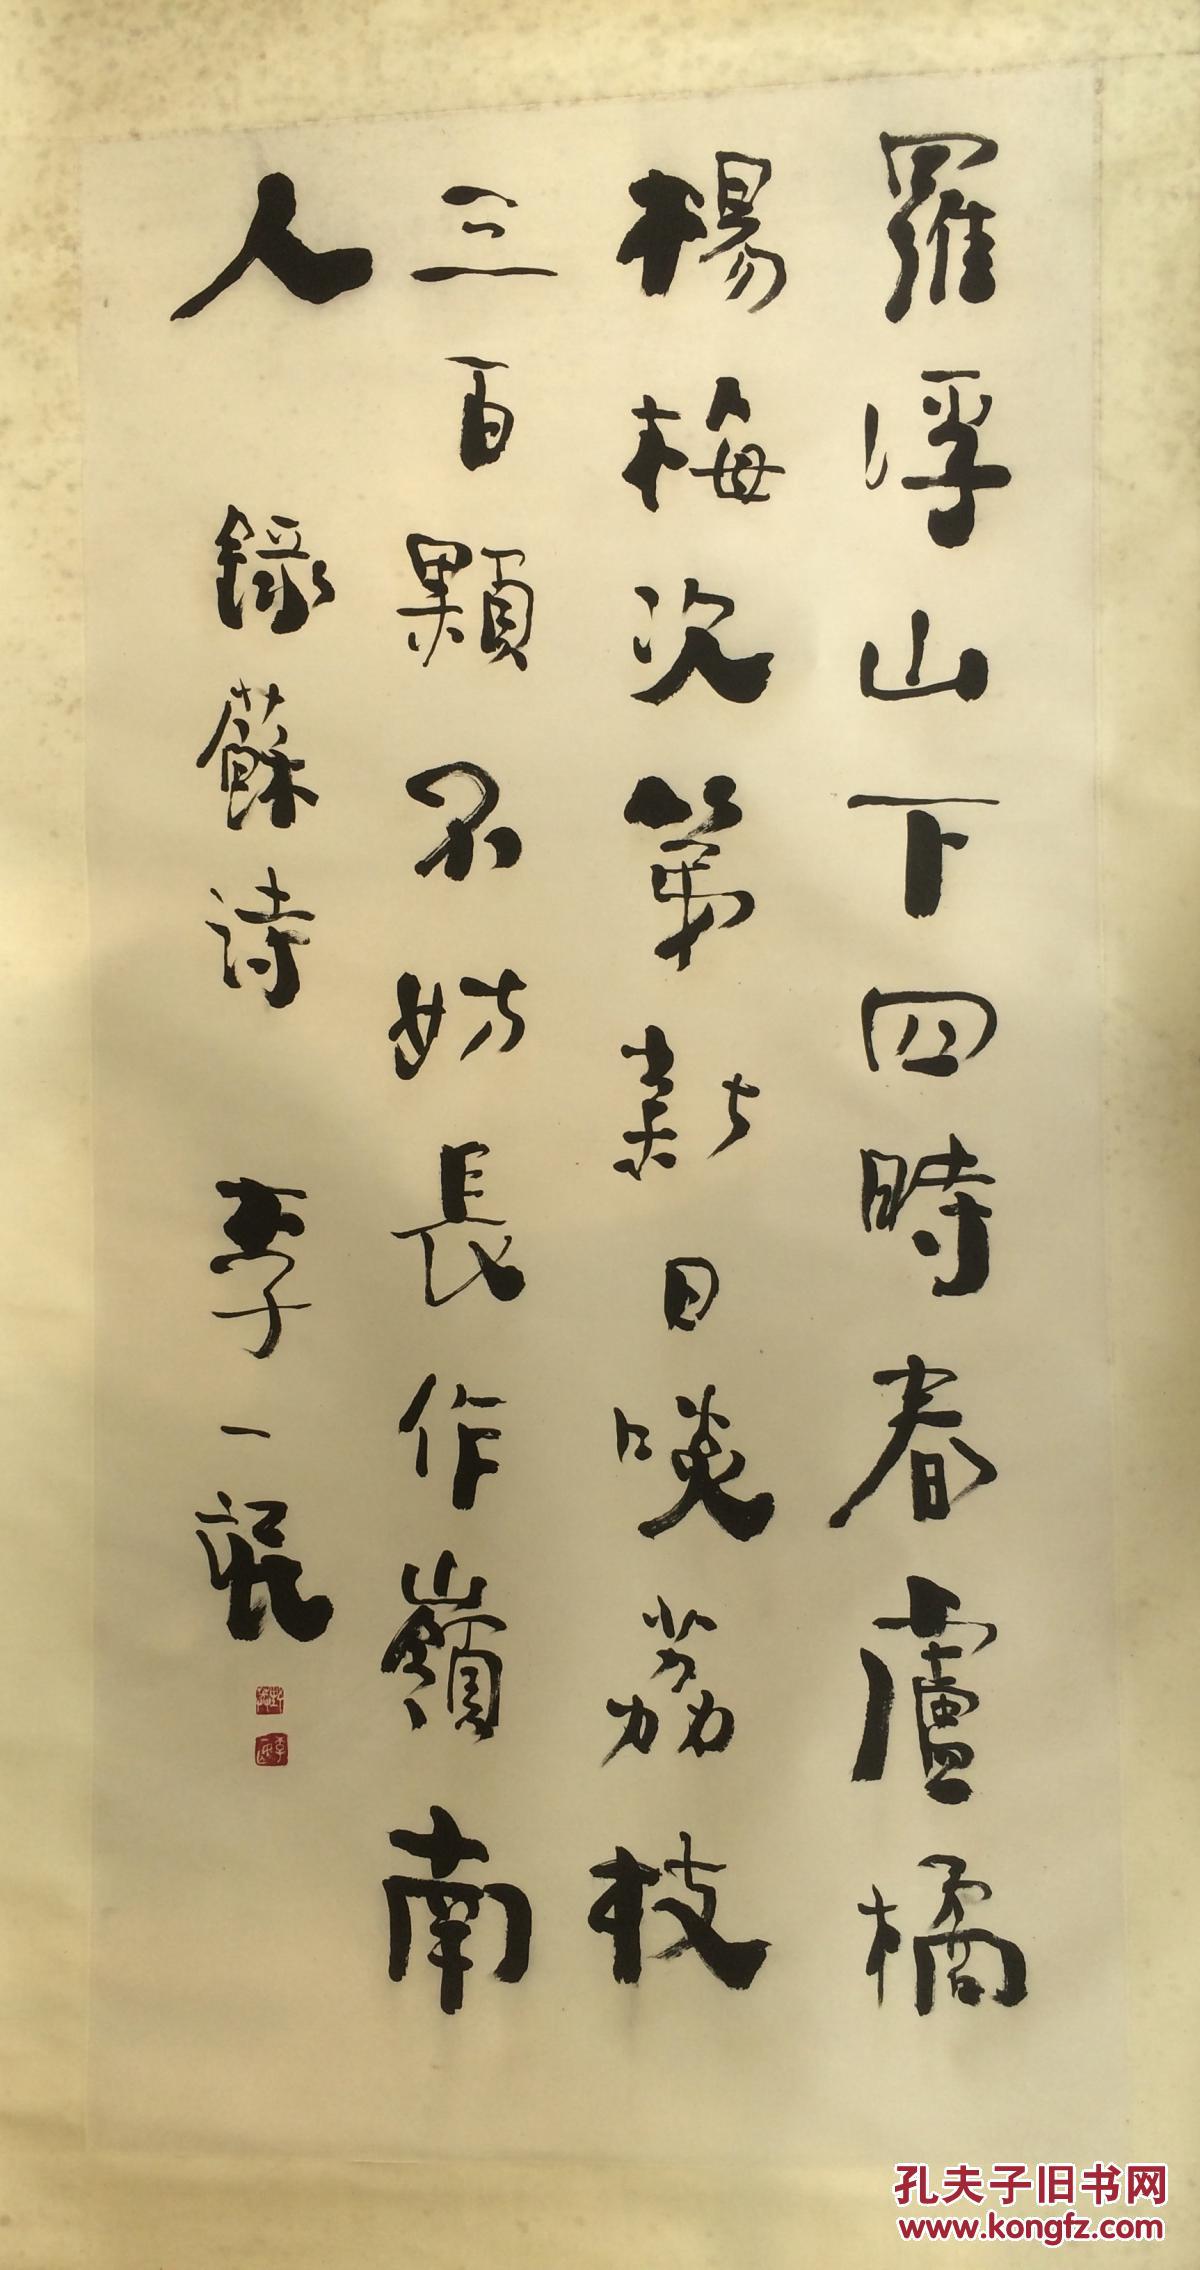 羅浮山下四時春盧橘
楊梅次第新日啖荔枝
三百顆不妨長作嶺南
人 錄蘇詩 李一氓
孔夫子旧书网
www.kongfz.com